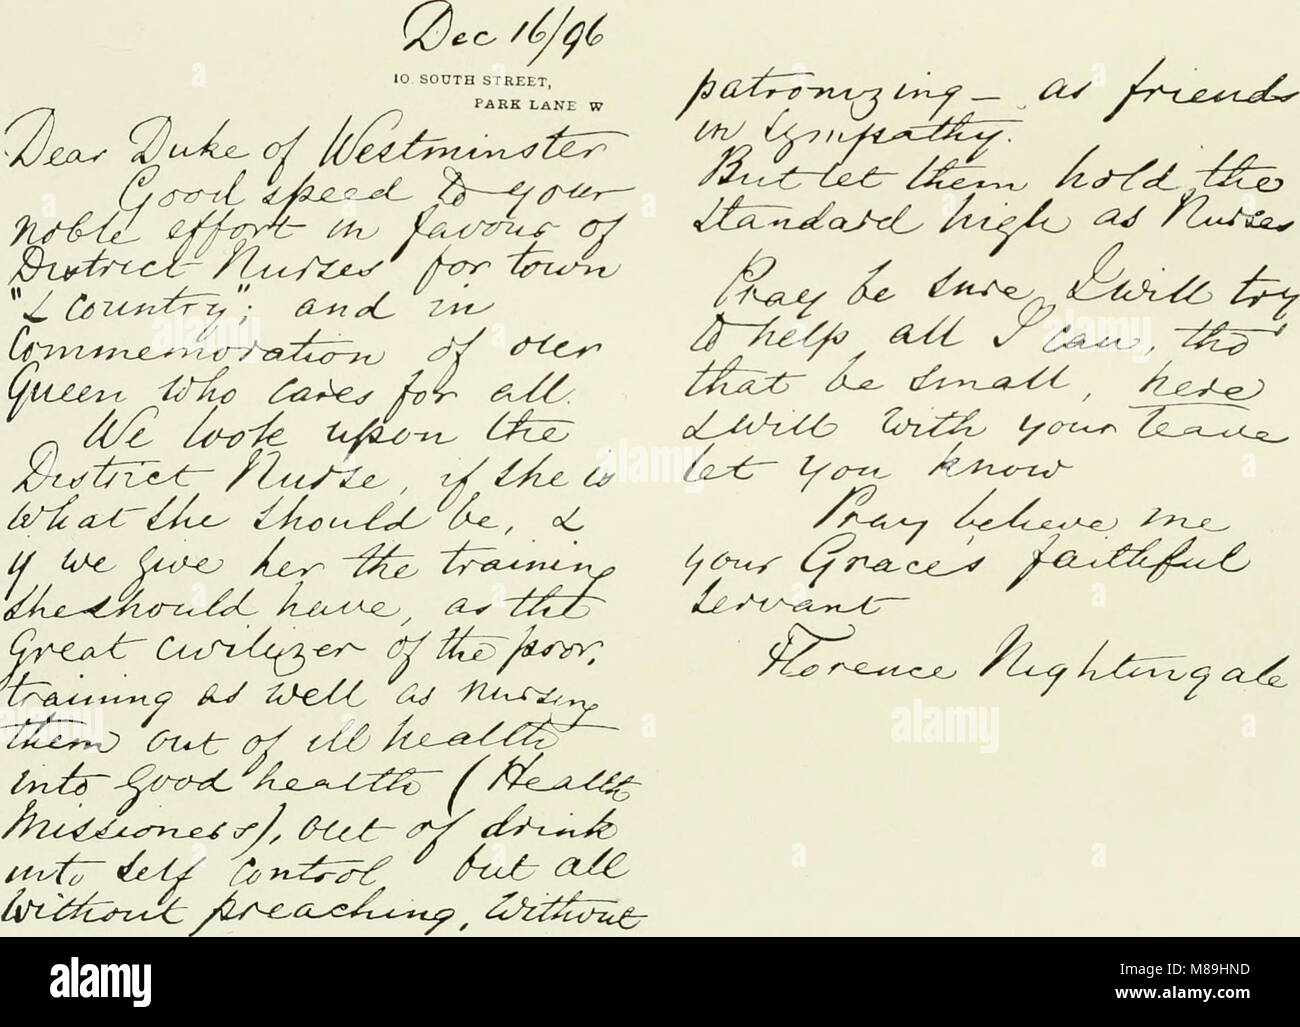 Dec 16/96
10. SOUTH STREET,
PARK LANE W
Dear Duke of Westminster
Good speed to your
noble effort in favour of
District Nurses for town
"& country"; and in
Commemoration of our
Queen who cares for all.
We look upon the
District Nurse, if she is
what she should be, &
if we give her the training
she should have, as the
Great civilizer of the poor,
training as well as nursing
them out of ill health
into good health (Health
Missioners), out of drink
into self control but all
without preaching, without
patronizing – as friends
in sympathy.
But let them hold the
standard high as Nurses
Pray be sure I will try
to help all I can, tho'
that be small, here
& will with your leave
let you know
Pray believe me
your Grace's faithful
servant
Florence Nightingale
alamy
Image ID: M89HND
www.alamy.com